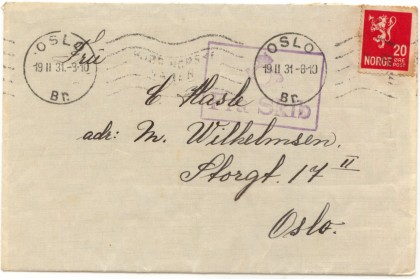 OSLO
19 II 31.-8-10
Br.
OSLO
19 II 31-8-10
Br.
20
NORGE
Fru
E Hasle
adr: M. Wilhelmsen.
Storgt. 17 II
Oslo.